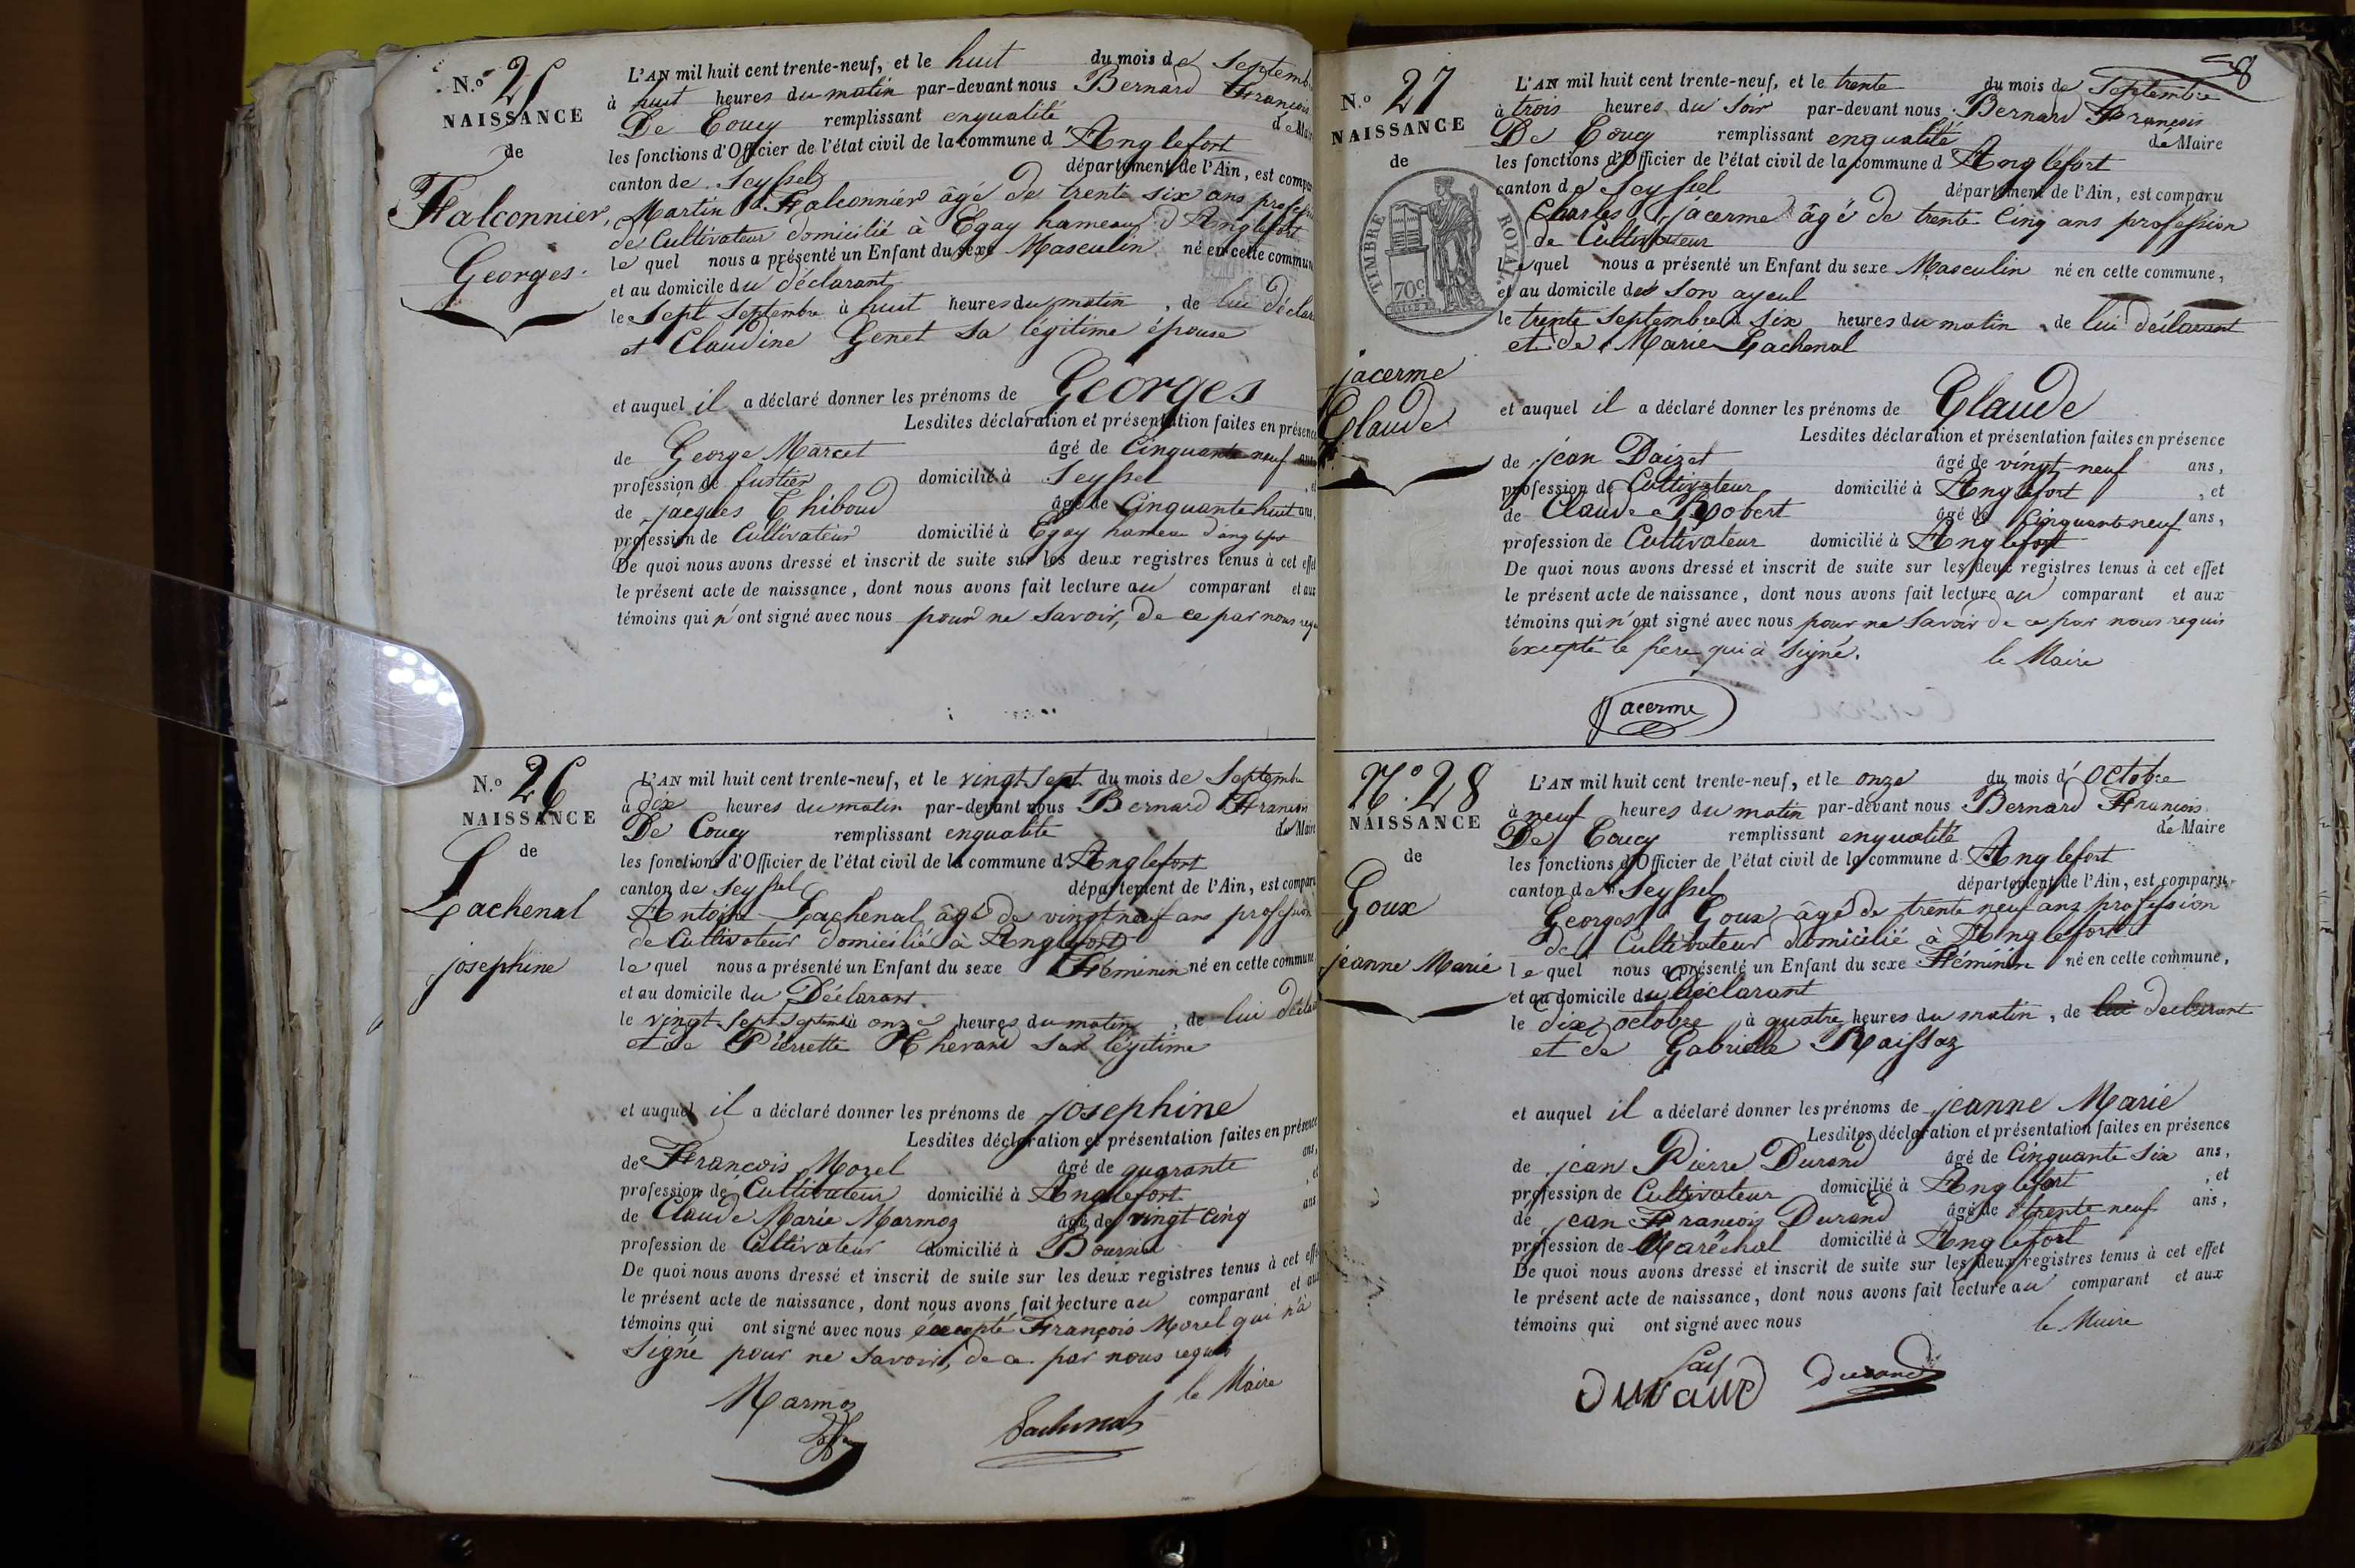 N.º 25
NAISSANCE
de
Falconnier,
Georges.
L'AN mil huit cent trente-neuf, et le huit du mois de Septemb
à huit heures du matin par-devant nous Bernard François
De Coucy remplissant enqualité de Mai
les fonctions d'Officier de l'état civil de la commune d'Anglefort
canton de Seyssel département de l'Ain, est compa
Martin Falconnier âgé de trente six ans profess
de Cultivateur domicilié à Egay hameau d'Anglefort
le quel nous a présenté un Enfant du sexe Masculin né en cette commun
et au domicile du déclarant
le Sept Septembre à huit heures du matin, de lui déclar
et Claudine Genet sa légitime épouse
et auquel il a déclaré donner les prénoms de Georges
Lesdites déclaration et présentation faites en présence
de George Marcet âgé de Cinquante neuf ans
profession de fustier domicilié à Seyssel, et
de jacques Thiboud âgé de Cinquante huit ans,
profession de Cultivateur domicilié à Egay hameau d'anglefort
De quoi nous avons dressé et inscrit de suite sur les deux registres tenus à cet effet
le présent acte de naissance, dont nous avons fait lecture au comparant et aux
témoins qui n'ont signé avec nous pour ne savoir, de ce par nous requ
N.º 26
NAISSANCE
de
Lachenal
josephine
L'AN mil huit cent trente-neuf, et le vingt Sept du mois de Septembre
à dix heures du matin par-devant nous Bernard François
De Coucy remplissant enqualité de Maire
les fonctions d'Officier de l'état civil de la commune d'Anglefort
canton de Seyssel département de l'Ain, est comparu
Antoine Lachenal, âgé de vingt neuf ans profession
de Cultivateur domicilié à Anglefort
le quel nous a présenté un Enfant du sexe Féminin né en cette commune
et au domicile du Déclarant
le vingt Sept Septembre à onze heures du matin, de lui décla
et de Pierrette Thevand Sa légitime
et auquel il a déclaré donner les prénoms de josephine
Lesdites déclaration et présentation faites en présence
de François Morel âgé de quarante ans,
profession de Cultivateur domicilié à Anglefort, et
de Claude Marie Marmoz âgé de vingt Cinq ans
profession de Cultivateur domicilié à
De quoi nous avons dressé et inscrit de suite sur les deux registres tenus à cet effe
le présent acte de naissance, dont nous avons fait lecture au comparant et aux
témoins qui ont signé avec nous éxcepté François Morel qui n'a
Signé pour ne savoir, de ce par nous requis
le Maire
Marmoz Lachenal
38
N.º 27
NAISSANCE
de
TIMBRE ROYAL
70c
jacerme
Claude
L'AN mil huit cent trente-neuf, et le trente du mois de Septembre
à trois heures du Soir par-devant nous Bernard François
De Coucy remplissant enqualité de Maire
les fonctions d'Officier de l'état civil de la commune d'Anglefort
canton de Seyssel département de l'Ain, est comparu
Charles jacerme âgé de trente Cinq ans profession
de Cultivateur
le quel nous a présenté un Enfant du sexe Masculin né en cette commune,
et au domicile de Son ayeul
le trente Septembre à Six heures du matin, de lui déclarant
et de Marie Lachenal
et auquel il a déclaré donner les prénoms de Claude
Lesdites déclaration et présentation faites en présence
de jean Daizet âgé de vingt neuf ans,
profession de Cultivateur domicilié à Anglefort, et
de Claude Robert âgé de Cinquante neuf ans,
profession de Cultivateur domicilié à Anglefort
De quoi nous avons dressé et inscrit de suite sur les deux registres tenus à cet effet
le présent acte de naissance, dont nous avons fait lecture au comparant et aux
témoins qui n'ont signé avec nous pour ne savoir de ce par nous requis
éxcepté le père qui à signé. le Maire
Jacerme
N.º 28
NAISSANCE
de
Goux
jeanne Marie
L'AN mil huit cent trente-neuf, et le onze du mois d'Octobre
à neuf heures du matin par-devant nous Bernard François
De Coucy remplissant enqualité de Maire
les fonctions d'Officier de l'état civil de la commune d Anglefort
canton de Seyssel département de l'Ain, est comparu
Georges Goux, âgé de trente neuf ans profession
de Cultivateur domicilié à Anglefort
le quel nous a présenté un Enfant du sexe Féminin né en cette commune,
et au domicile du déclarant
le dix octobre à quatre heures du matin, de lui declarant
et de Gabrielle Raissaz
et auquel il a déclaré donner les prénoms de jeanne Marie
Lesdites déclaration et présentation faites en présence
de jean Pierre Durand âgé de Cinquante Six ans,
profession de Cultivateur domicilié à Anglefort, et
de jean François Durand âgé de trente neuf ans,
profession de Maréchal domicilié à Anglefort
De quoi nous avons dressé et inscrit de suite sur les deux registres tenus à cet effet
le présent acte de naissance, dont nous avons fait lecture au comparant et aux
témoins qui ont signé avec nous le Maire
Durand Durand